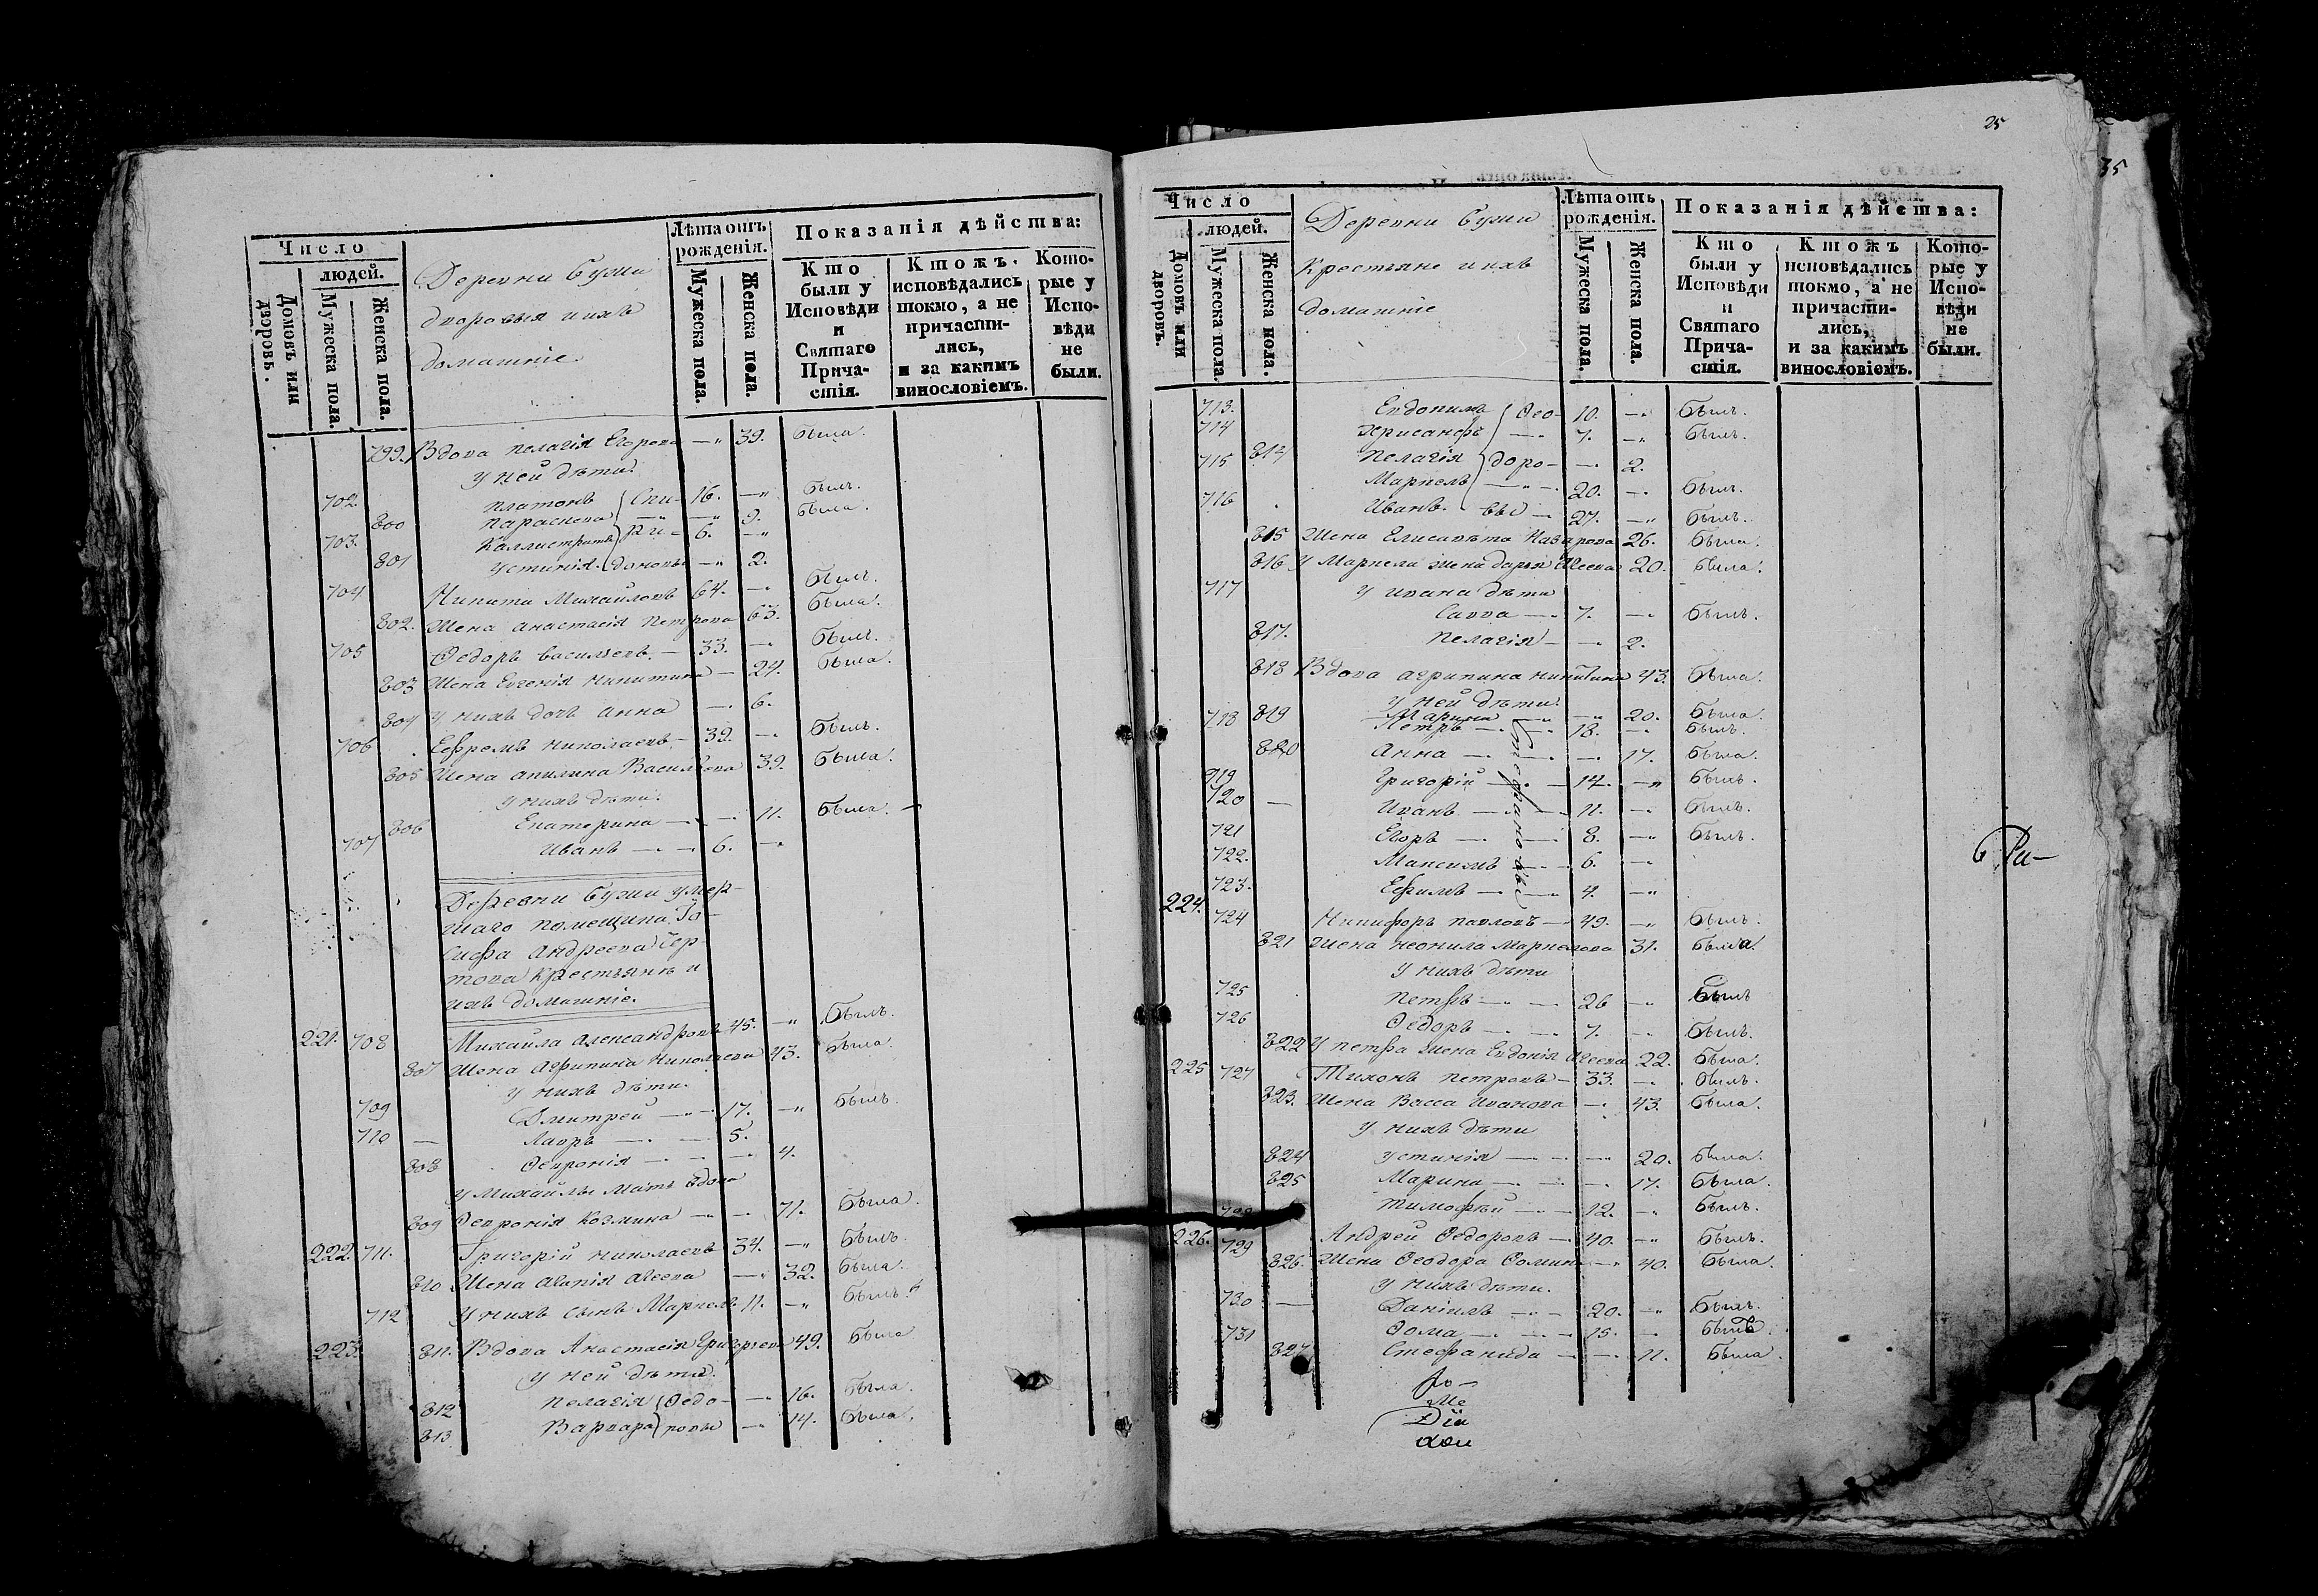 Число
людей.
Домовъ или дворовъ.
Мужеска пола.
Женска пола.
Деревни Бузи
дворовыя и ихъ
домашнiе.
Лѣта отъ рожденiя.
Мужеска пола.
Женска пола.
Показанiя дѣйства:
Кто были у Исповѣди и Святаго Причастiя.
Ктожъ исповѣдались токмо, а не причастились, и за какимъ винословiемъ.
Которые у Исповѣди не были.
799. Вдова Пелагiя Егорова —" 39. была.
у ней дѣти.
702. Платонъ Спи- 16. —" былъ.
800 Параскева —" 9. была.
703. Каллистратъ ри- 6. —"
801 Устинiя доновы —" 2.
704 Никита Михайловъ 64. — былъ.
802. Жена Анастасiя Петрова 63. была.
705 Ѳедоръ Васильевъ — 33. — былъ.
803 Жена Евгенiя Никитина — 24. была.
804 у нихъ дочь Анна — 6.
706 Ефремъ Николаевъ — 39. — былъ.
805 Жена Акилина Васильева 39. была.
у нихъ дѣти.
806 Екатерина — — 11. была.
707 Иванъ — — 6. —"
Деревни Бузи умер-
шаго помещика Iо-
сифа Андреева Чер-
това крестьяне и
ихъ домашнiе.
221. 708 Михайла Александровъ 45. —" былъ.
807 Жена Агрипина Николаева 43. была.
у нихъ дѣти.
709 Дмитрей — 17. —" былъ.
710 — Лавръ — — 5.
808 Ѳевронiя — — 4.
у Михайлы мать вдова
809 Ѳевронiя Козмина — — 71. была.
222. 711. Григорiй Николаевъ 34. —" былъ.
810 Жена Агеева — 32. была.
712 у нихъ сынъ Маркелъ 11. —" былъ.
223. 811. Вдова Анастасiя Григорьева 49. была
у ней дѣти.
812 Пелагiя Ѳедо- — 16. была.
813 Варвара ровы — 14. была.
25
35
Число
людей.
Домовъ или дворовъ.
Мужеска пола.
Женска пола.
Деревни Бузи
Крестьяне и ихъ
домашнiе
Лѣта отъ рожденiя.
Мужеска пола.
Женска пола.
Показанiя дѣйства:
Кто были у Исповѣди и Святаго Причастiя.
Ктожъ исповѣдались токмо, а не причастились, и за какимъ винословiемъ.
Которые у Исповѣди не были.
713. Евдокимъ Ѳео- 10. —" былъ.
714 Хрисанфъ — 7. —" былъ.
814 Пелагiя доро- — 2.
715 Маркелъ — 20. — былъ.
716 Иванъ вы — 27. —" былъ.
815 Жена Елисавета Назарова 26. была.
816 у Маркела жена Дарья Агеева 20. была.
у Ивана дѣти
717 Савва — 7. — былъ.
817. Пелагiя — — 2.
818 Вдова Агрипина Никитина 43. была.
у ней дѣти.
819 Марина — —" 20. была.
718 Петръ — 18. — былъ.
820 Анна — — 17. была.
Стефановы
719 Григорiй — 14. —" былъ.
720 — Иванъ — 11. — былъ.
721 Егоръ — 8. —" былъ.
722. Максимъ — 6. —"
723. Ефимъ — 4. —"
224. 724 Никифоръ Павловъ — 49. —" былъ.
821 Жена Неонила Маркелова 31. была.
у нихъ дѣти
725 Петръ — 26 —" былъ
726 Ѳедоръ — 7. — былъ.
822 у Петра жена Евдокiя Агеева 22. была.
225 727 Тихонъ Петровъ — 33. — былъ.
823. Жена Васса Иванова — 43. была.
у нихъ дѣти
824 Устинiя — —" 20. была.
825 Марина — — 17. была.
728 Тимофѣй — 12. —" былъ.
226. 729 Андрей Ѳедоровъ — 40. —" былъ.
826. Жена Ѳеодора Ѳомина —" 40. была.
у нихъ дѣти.
730 — Данiилъ — 20. —" былъ.
731 Ѳома — — 15. — былъ.
827 Стефанида — — 11. была.
Дiа
кон